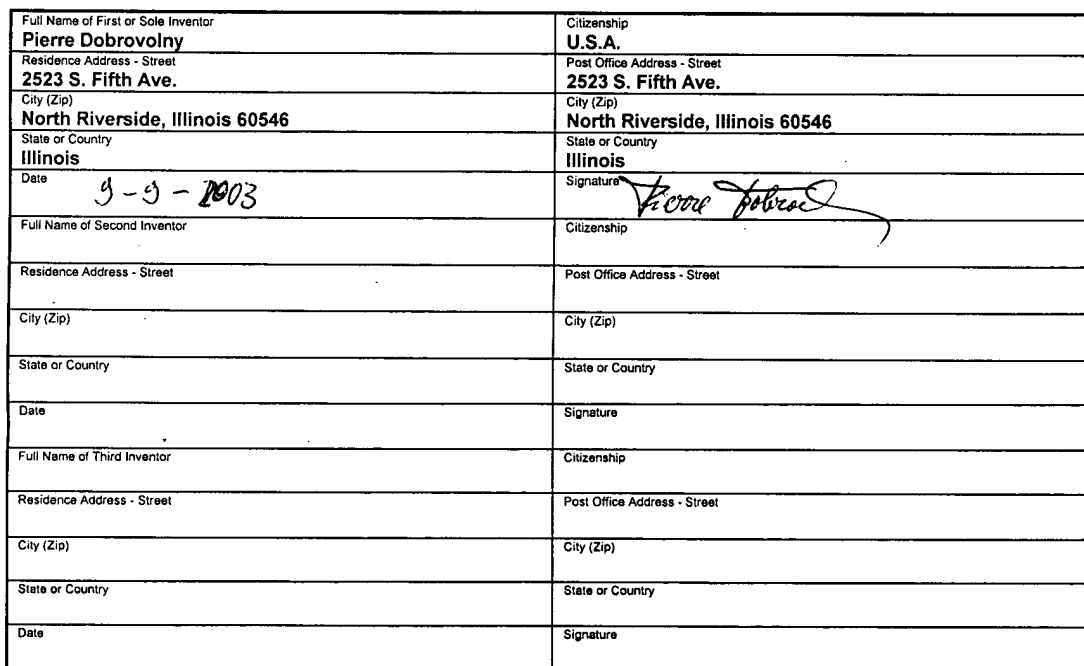 Full Name of First or Sole Inventor
Pierre Dobrovolny
Citizenship
U.S.A.
Residence Address - Street
2523 S. Fifth Ave.
Post Office Address - Street
2523 S. Fifth Ave.
City (Zip)
North Riverside, Illinois 60546
City (Zip)
North Riverside, Illinois 60546
State or Country
Illinois
State or Country
Illinois
Date 9-9-2003
Signature Pierre
Full Name of Second Inventor
Citizenship
Residence Address - Street
Post Office Address - Street
City (Zip)
City (Zip)
State or Country
State or Country
Date
Signature
Full Name of Third Inventor
Citizenship
Residence Address - Street
Post Office Address - Street
City (Zip)
City (Zip)
State or Country
State or Country
Date
Signature